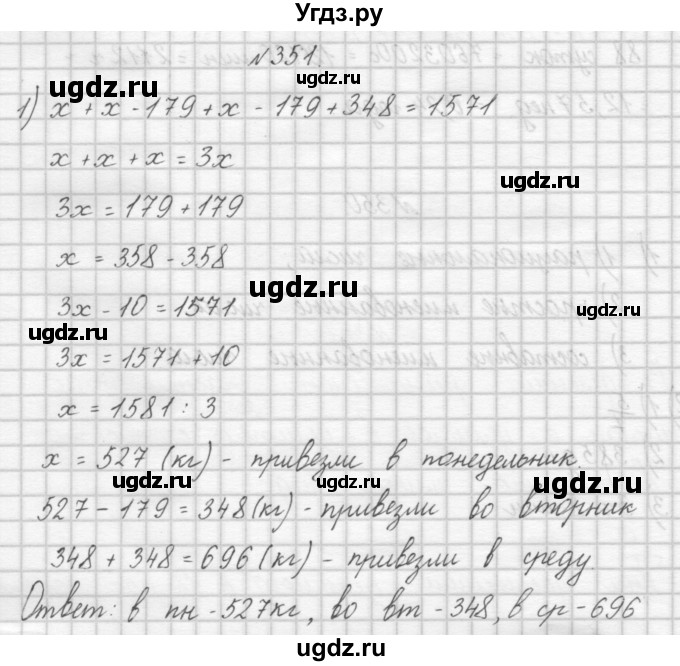 Угдз.ру
№351.
ugdz.ru
ugdz.ru
1) x + x - 179 + x - 179 + 348 = 1571
x + x + x = 3x
ugdz.ru
3x = 179 + 179
x = 358 - 358
ugdz.ru
3x - 10 = 1571
ugdz.ru
ugdz.ru
3x = 1571 + 10
x = 1581 : 3
x = 527 (кг) - привезли в понедельник.
ugdz.ru
ugdz.ru
ugdz.ru
527 - 179 = 348 (кг) - привезли во вторник
348 + 348 = 696 (кг) - привезли в среду.
Ответ: в пн - 527 кг, во вт - 348, в ср - 696
ugdz.ru